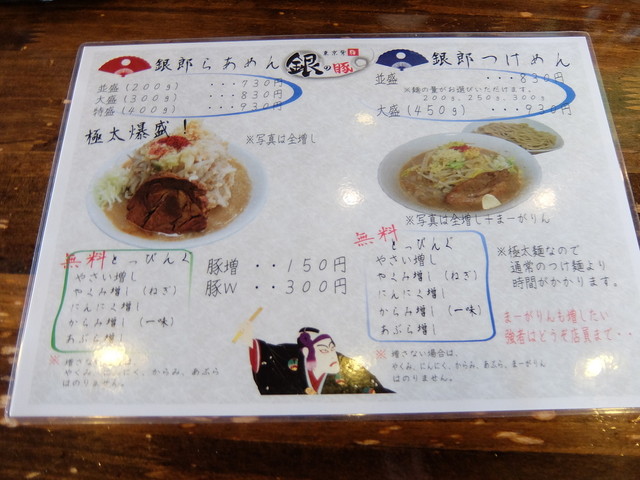 銀郎らあめん
並盛(200g) ・・・730円
大盛(300g) ・・・830円
特盛(400g) ・・・930円
極太爆盛!
※写真は全増し
銀の豚
銀郎つけめん
並盛 ・・・830円
※麺の量がお選びいただけます。
200g、250g、300g
大盛(450g) ・・・930円
※写真は全増し+まーがりん
無料とっぴんぐ
やさい増し
やくみ増し(ねぎ)
にんにく増し
からみ増し(一味)
あぶら増し
※増さない場合は、
やくみ、にんにく、からみ、あぶら
はのりません。
豚増 ・・150円
豚W ・・300円
無料
とっぴんぐ
やさい増し
やくみ増し(ねぎ)
にんにく増し
からみ増し(一味)
あぶら増し
※増さない場合は、
やくみ、にんにく、からみ、あぶら、まーがりん
はのりません。
※極太麺なので
通常のつけ麺より
時間がかかります。
まーがりんも増したい
強者はどうぞ店員まで・・